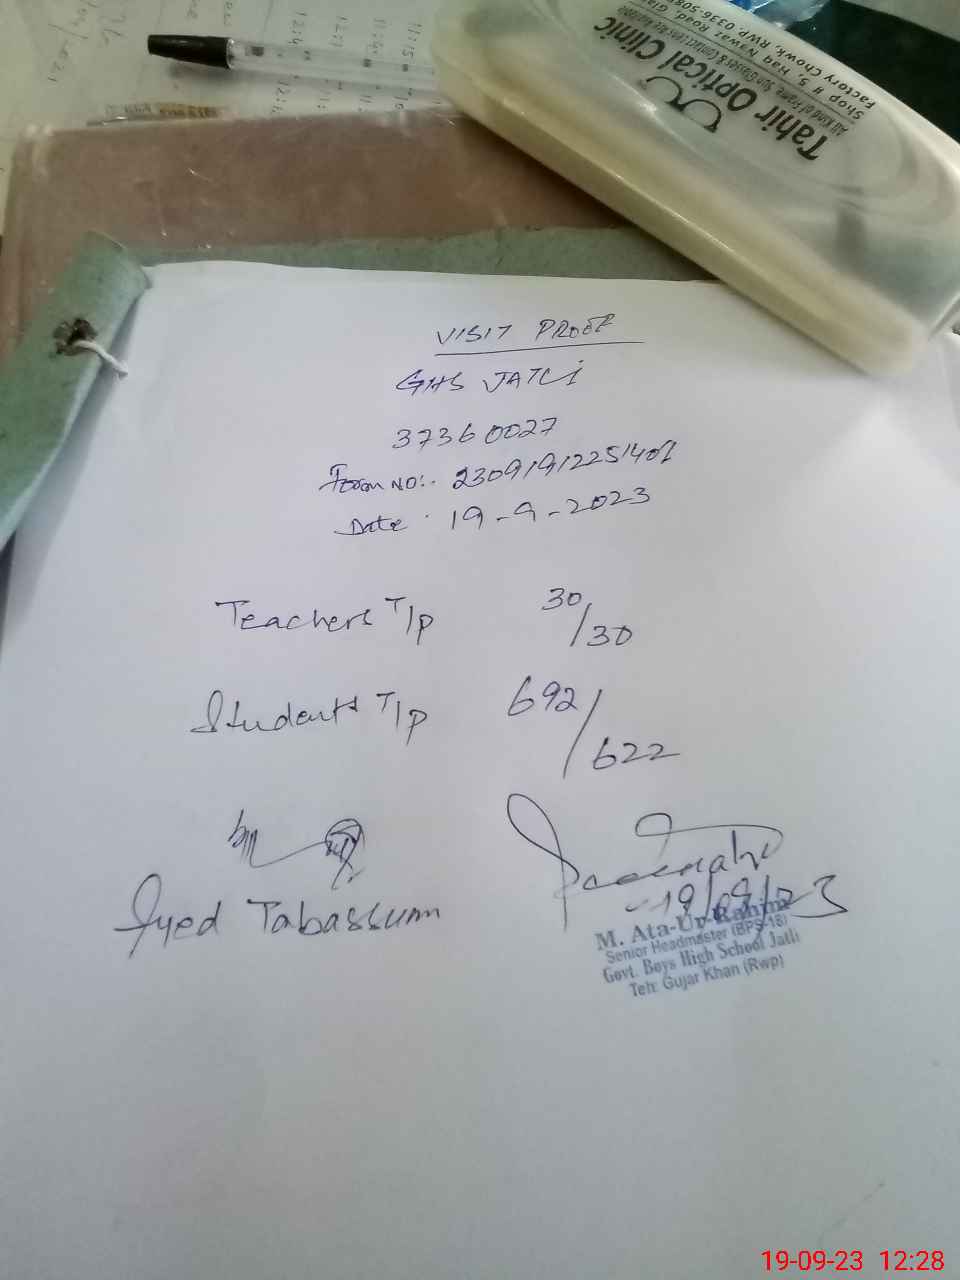 Tahir Optical Clinic
All Kind of Frame, Sun Glasses & Contact Lens Are Available
Shop # 5, Haq Nawaz Road
Factory Chowk, RWP 0336-508
VISIT PROOF
GHS JATLI
37360027
Form NO:. 2309191225140
Date . 19-9-2023
Teachers T/P 30/30
Students T/P 692/622
Syed Tabassum
19/09/23
M. Ata-Ur-Rahim
Senior Headmaster (BPS-18)
Govt. Boys High School Jatli
Teh: Gujar Khan (Rwp)
19-09-23 12:28